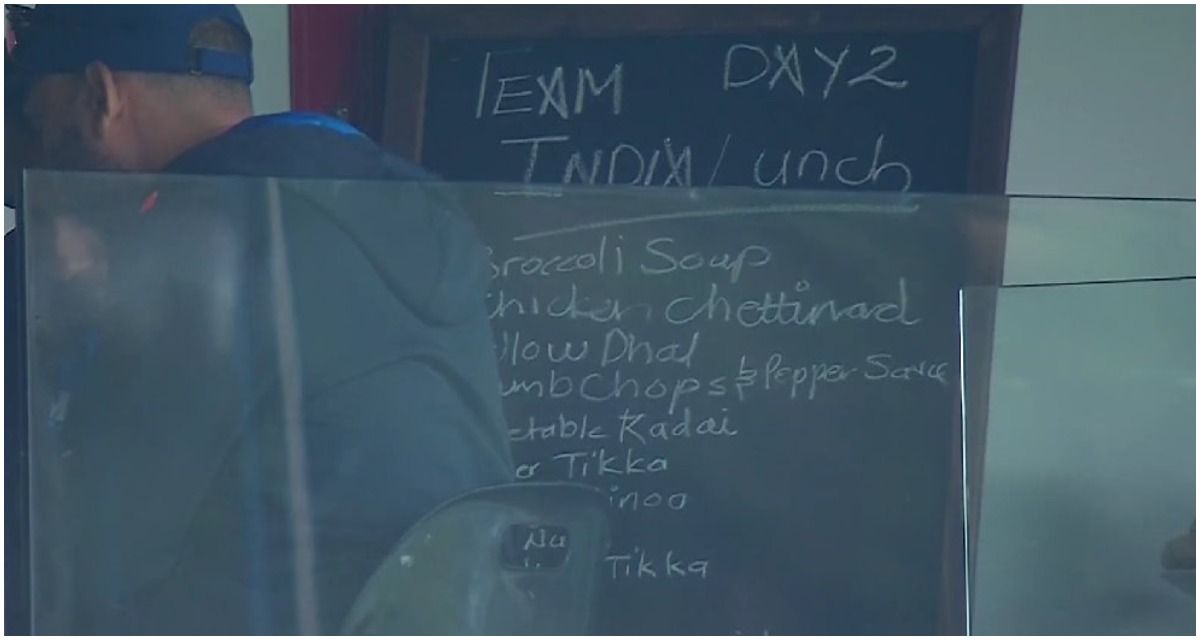 TEAM DAY2
INDIA Lunch
Broccoli Soup
Chicken Chettinard
llow Dhal
umb Chops & Pepper Sauce
etable Kadai
er Tikka
inoa
Tikka